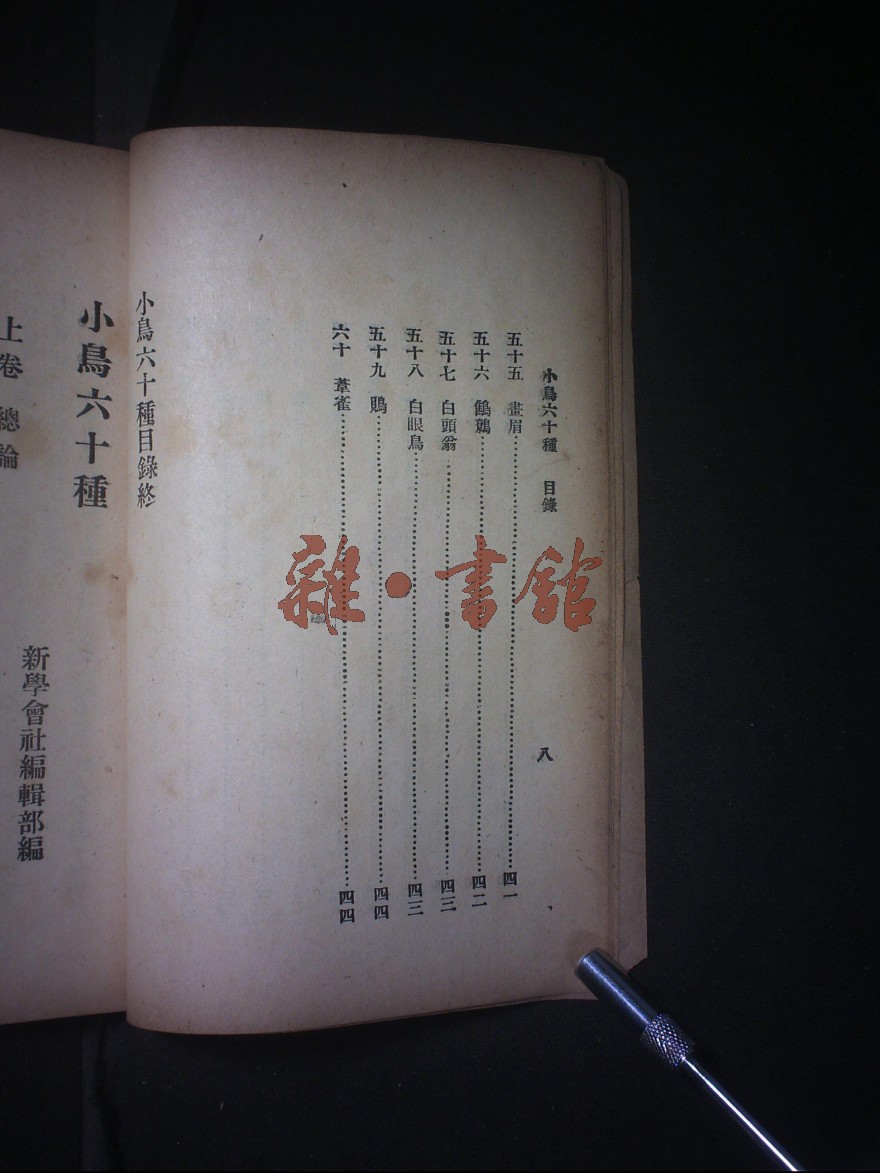 小鳥六十種 目錄 八
五十五 畫眉……四一
五十六 ……四二
五十七 白頭翁……四三
五十八 白眼鳥……四三
五十九 鵙……四四
六十 葦雀……四四
小鳥六十種目錄終
小鳥六十種
新學會社編輯部編
上卷 總論
雜·書館